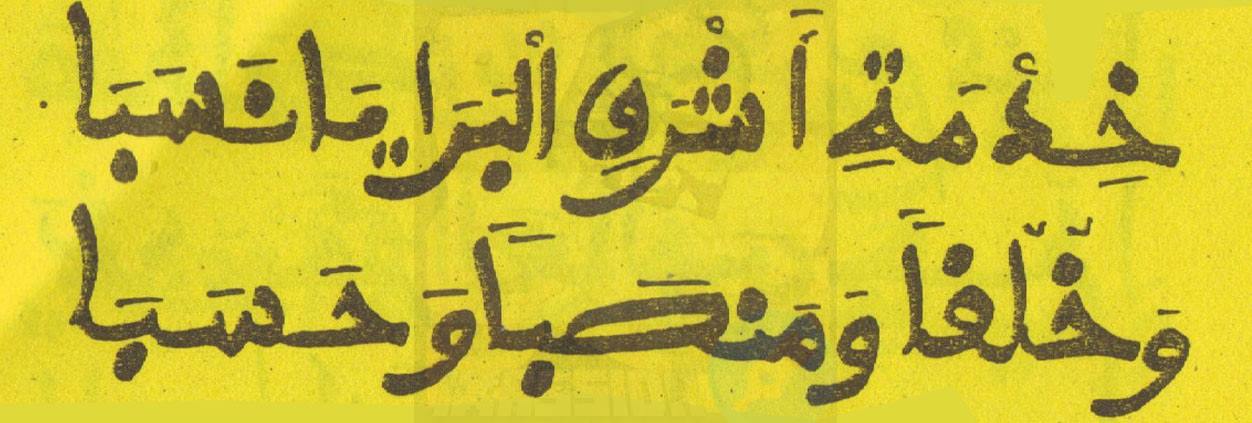 خِدْمَةِ أَشْرَفِ الْبَرَايَا نَسَبَا
وَخُلُقاً وَمَنْصَباً وَحَسَبَا